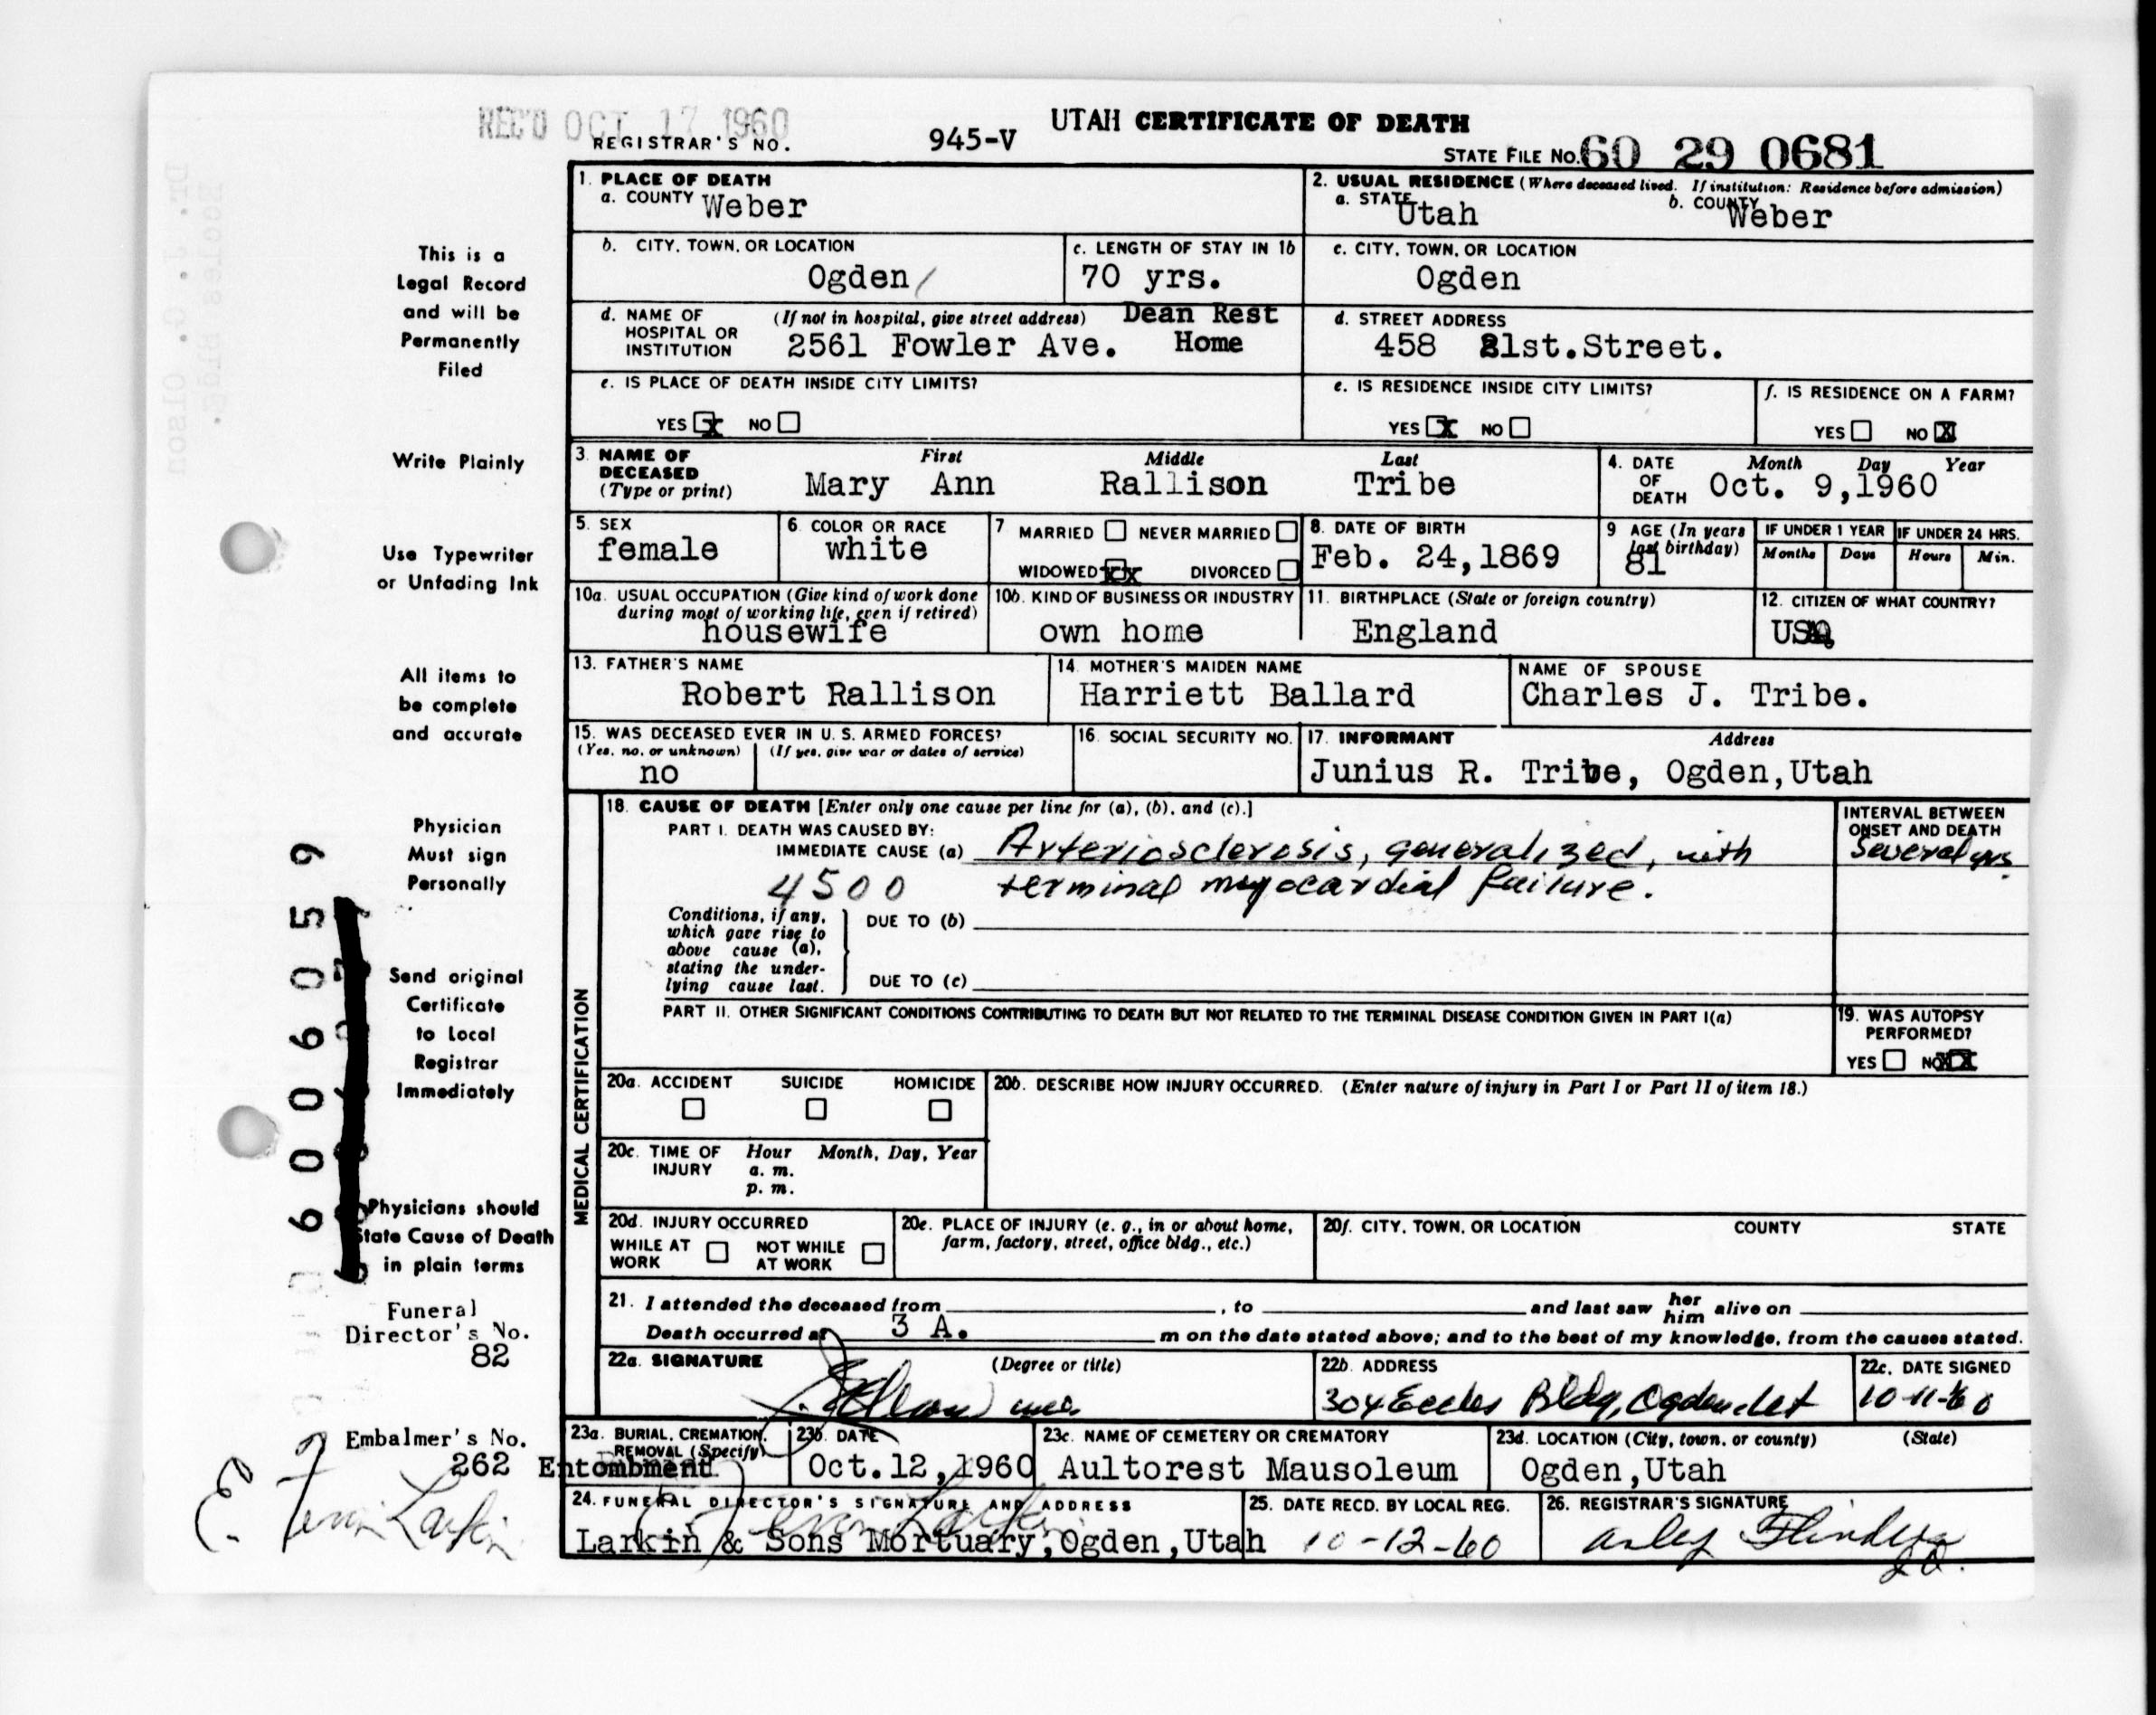 REC'D OCT 17 1960
UTAH CERTIFICATE OF DEATH
REGISTRAR'S NO. 945-V
STATE FILE NO. 60 29 0681
This is a
Legal Record
and will be
Permanently
Filed
Write Plainly
Use Typewriter
or Unfading Ink
All items to
be complete
and accurate
Physician
Must sign
Personally
Send original
Certificate
to Local
Registrar
Immediately
Physicians should
State Cause of Death
in plain terms
Funeral
Director's No.
82
Embalmer's No.
262
6 0 0 6 0 5 9
1. PLACE OF DEATH
a. COUNTY Weber
2. USUAL RESIDENCE (Where deceased lived. If institution: Residence before admission)
a. STATE Utah b. COUNTY Weber
b. CITY, TOWN, OR LOCATION
Ogden
c. LENGTH OF STAY IN 1b
70 yrs.
c. CITY, TOWN, OR LOCATION
Ogden
d. NAME OF HOSPITAL OR INSTITUTION (If not in hospital, give street address) Dean Rest
2561 Fowler Ave. Home
d. STREET ADDRESS
458 21st.Street.
e. IS PLACE OF DEATH INSIDE CITY LIMITS?
YES X NO
e. IS RESIDENCE INSIDE CITY LIMITS?
YES X NO
f. IS RESIDENCE ON A FARM?
YES NO X
3. NAME OF DECEASED (Type or print) First Middle Last
Mary Ann Rallison Tribe
4. DATE OF DEATH Month Day Year
Oct. 9,1960
5. SEX
female
6. COLOR OR RACE
white
7 MARRIED NEVER MARRIED
WIDOWED XX DIVORCED
8. DATE OF BIRTH
Feb. 24,1869
9 AGE (In years last birthday)
81
IF UNDER 1 YEAR IF UNDER 24 HRS.
Months Days Hours Min.
10a. USUAL OCCUPATION (Give kind of work done
during most of working life, even if retired)
housewife
10b. KIND OF BUSINESS OR INDUSTRY
own home
11. BIRTHPLACE (State or foreign country)
England
12. CITIZEN OF WHAT COUNTRY?
USA
13. FATHER'S NAME
Robert Rallison
14. MOTHER'S MAIDEN NAME
Harriett Ballard
NAME OF SPOUSE
Charles J. Tribe.
15. WAS DECEASED EVER IN U. S. ARMED FORCES?
(Yes, no, or unknown) (If yes, give war or dates of service)
no
16. SOCIAL SECURITY NO.
17. INFORMANT Address
Junius R. Tribe, Ogden,Utah
MEDICAL CERTIFICATION
18. CAUSE OF DEATH [Enter only one cause per line for (a), (b), and (c).]
PART I. DEATH WAS CAUSED BY:
IMMEDIATE CAUSE (a) Arteriosclerosis, generalized, with
4500 terminal myocardial failure.
INTERVAL BETWEEN
ONSET AND DEATH
Several yrs.
Conditions, if any,
which gave rise to
above cause (a),
stating the under-
lying cause last.
DUE TO (b)
DUE TO (c)
PART II. OTHER SIGNIFICANT CONDITIONS CONTRIBUTING TO DEATH BUT NOT RELATED TO THE TERMINAL DISEASE CONDITION GIVEN IN PART I(a)
19. WAS AUTOPSY
PERFORMED?
YES NO XX
20a. ACCIDENT SUICIDE HOMICIDE
20b. DESCRIBE HOW INJURY OCCURRED. (Enter nature of injury in Part I or Part II of item 18.)
20c. TIME OF INJURY Hour Month, Day, Year
a. m.
p. m.
20d. INJURY OCCURRED
WHILE AT WORK NOT WHILE AT WORK
20e. PLACE OF INJURY (e. g., in or about home,
farm, factory, street, office bldg., etc.)
20f. CITY, TOWN, OR LOCATION COUNTY STATE
21. I attended the deceased from , to and last saw her him alive on
Death occurred at 3 A. m on the date stated above; and to the best of my knowledge, from the causes stated.
22a. SIGNATURE (Degree or title)
22b. ADDRESS
304 Eccles Bldg, Ogden, Ut
22c. DATE SIGNED
10-11-60
23a. BURIAL, CREMATION,
REMOVAL (Specify)
Entombment
23b. DATE
Oct.12,1960
23c. NAME OF CEMETERY OR CREMATORY
Aultorest Mausoleum
23d. LOCATION (City, town, or county) (State)
Ogden,Utah
24. FUNERAL DIRECTOR'S SIGNATURE AND ADDRESS
Larkin & Sons Mortuary,Ogden,Utah
25. DATE RECD. BY LOCAL REG.
10-12-60
26. REGISTRAR'S SIGNATURE